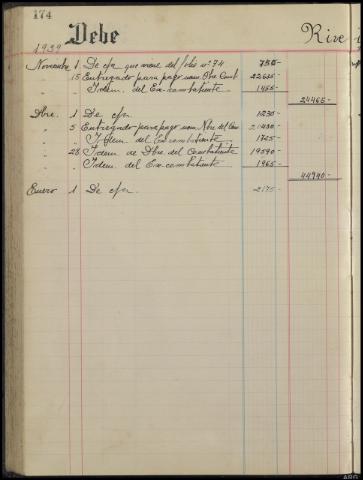 174
Debe Rive
1939
Noviembre 1 De cja que viene del folio nº 74 750-
" 15 Entregado para pago nom. Obre. Comb 22655-
" " Idem. del Ex-combatiente 1455-
24465-
Dbre. 1 De cja 1230-
" 5 Entregado para pago nom. Nbre. del Com 20430-
" " Idem. del Ex-combatiente 1725-
" 28 Idem de Dbre. del Combatiente 19590-
" " Idem del Ex-combatiente 1965-
44940-
Enero 1 De cja. 2175-